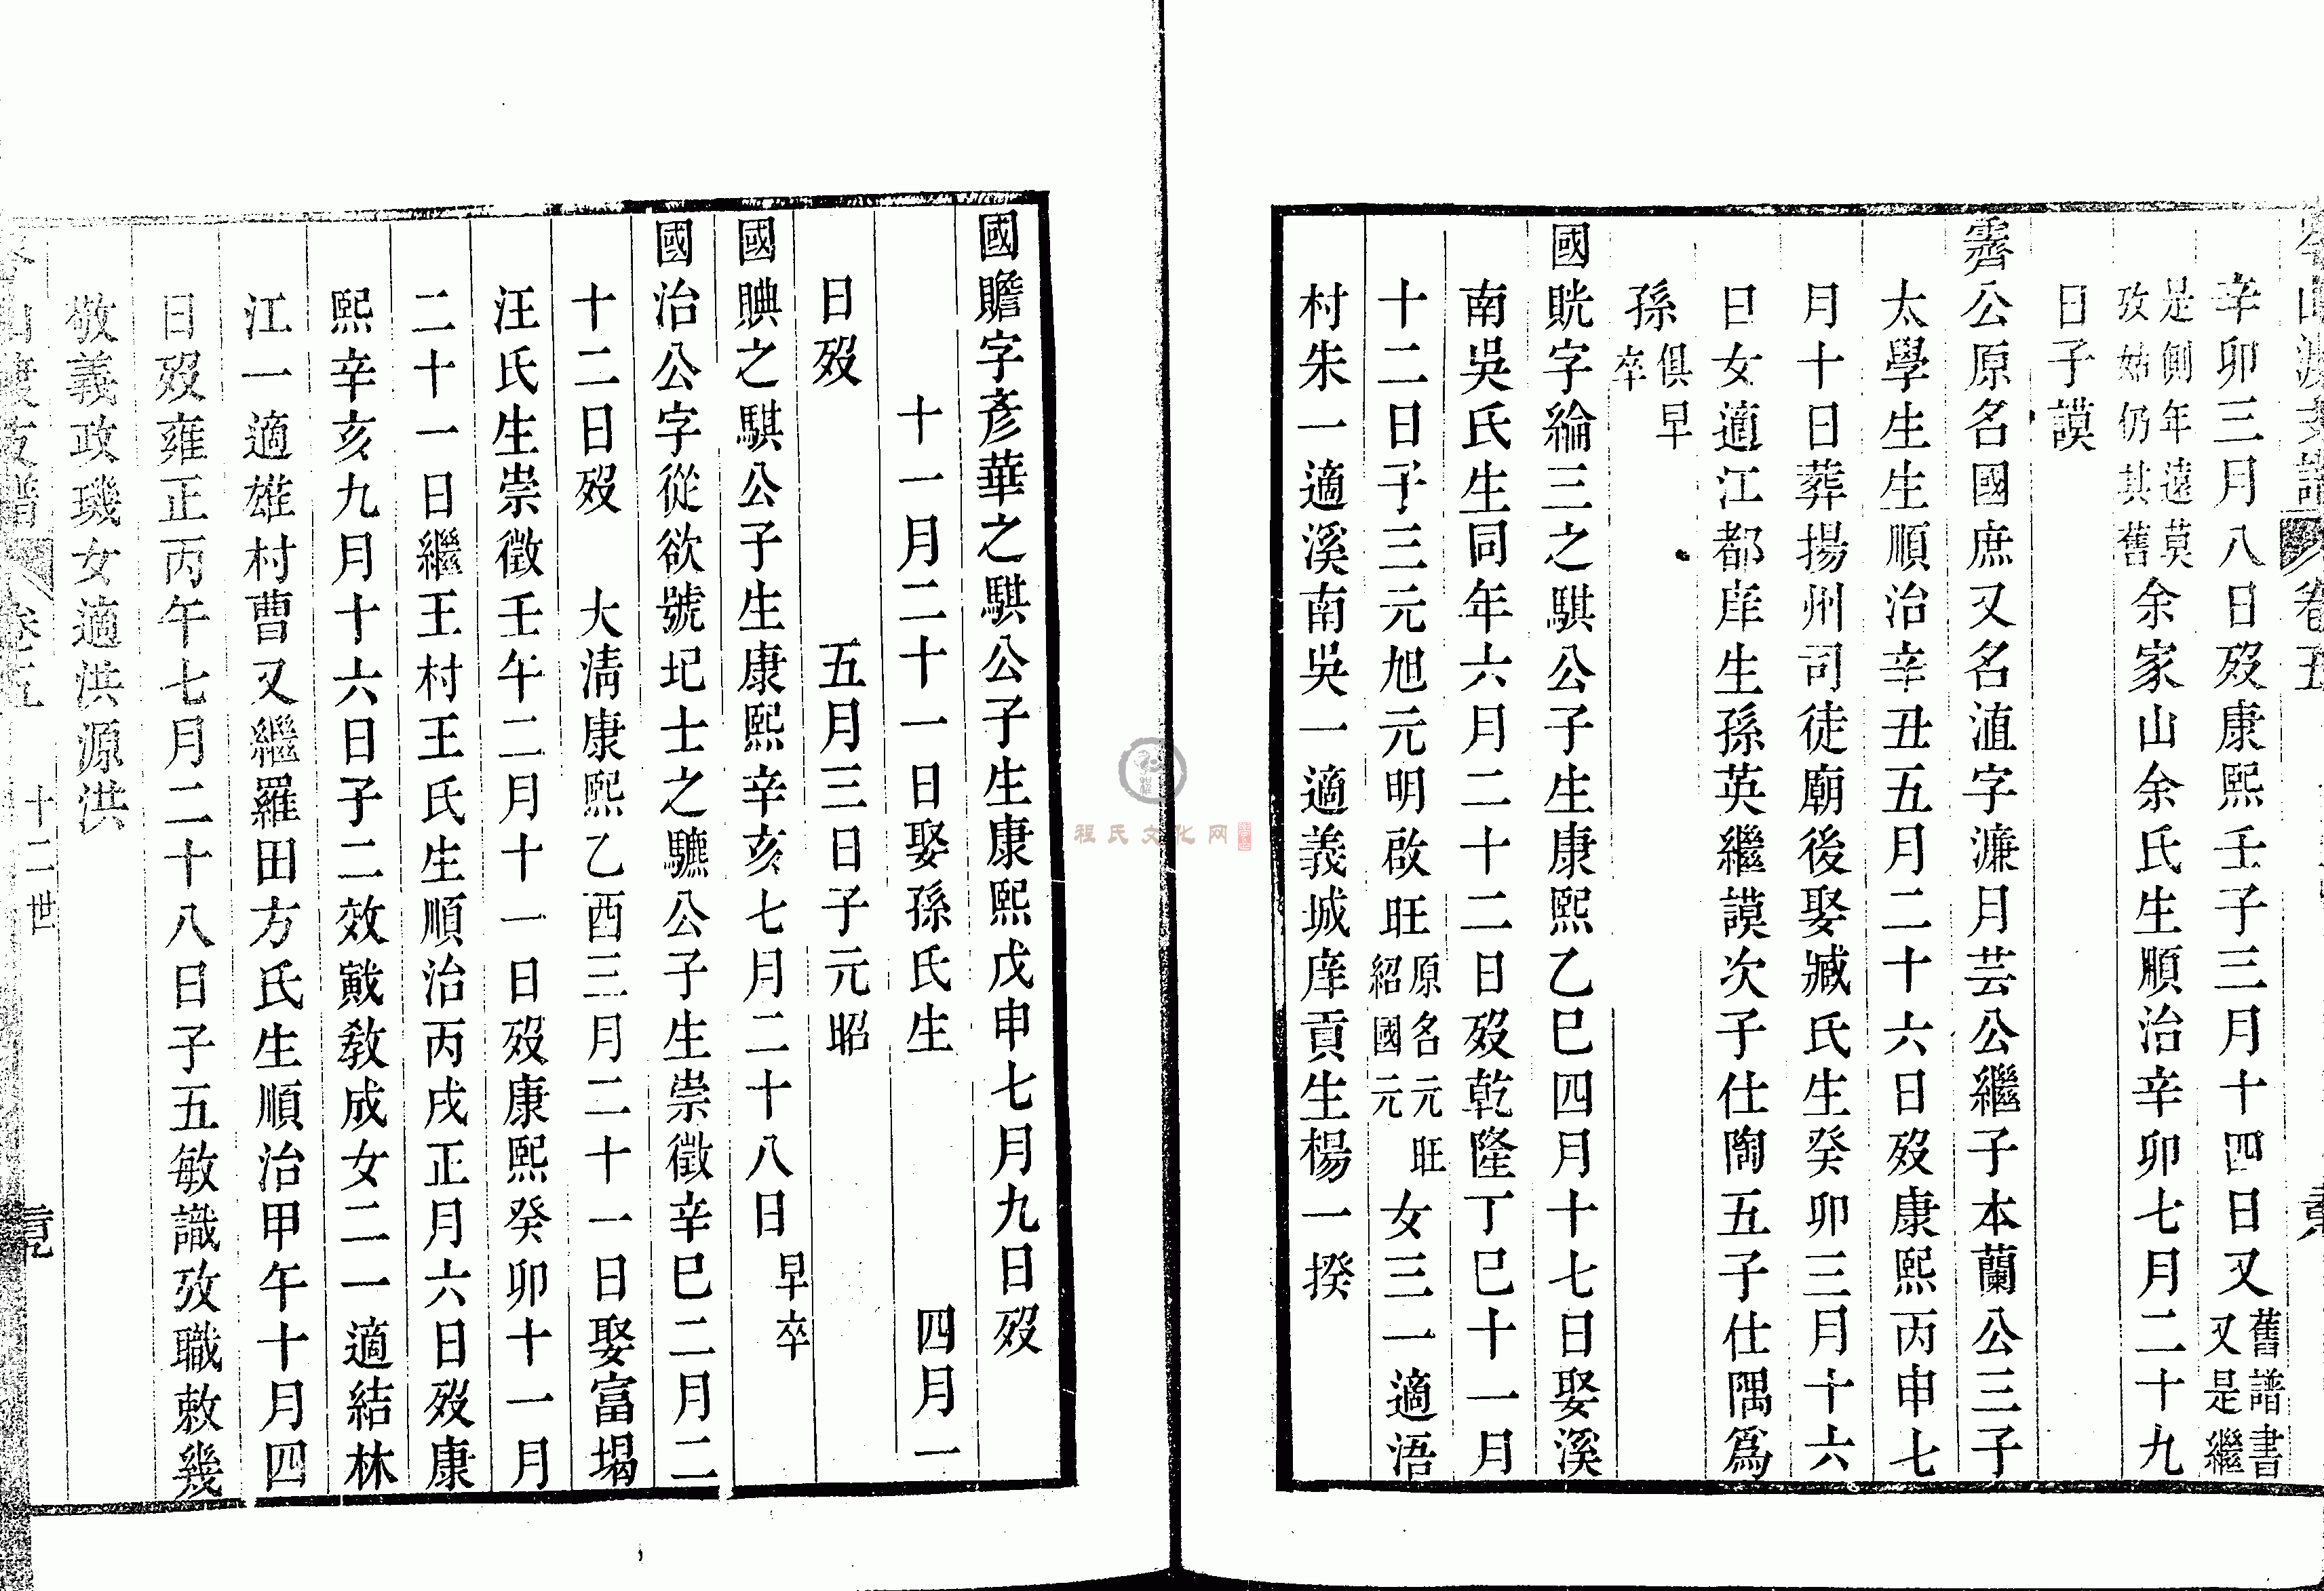 辛卯三月八日歿康熙壬子三月十四日又舊譜書又是繼
是側年遠莫攷姑仍其舊余家山余氏生順治辛卯七月二十九
日子謨
霽公原名國庶又名淔字濂月芸公繼子本蘭公三子
太學生生順治辛丑五月二十六日歿康熙丙申七
月十日葬揚州司徒廟後娶臧氏生癸卯三月十六
日女適江都庠生孫英繼謨次子仕陶五子仕隅爲
孫俱早卒
國晄字綸三之騏公子生康熙乙巳四月十七日娶溪
南吳氏生同年六月二十二日歿乾隆丁巳十一月
十二日子三元旭元明啟旺原名元旺紹國元女三一適浯
村朱一適溪南吳一適義城庠貢生楊一揆
國贍字彥華之騏公子生康熙戊申七月九日歿
十一月二十一日娶孫氏生 四月一
日歿 五月三日子元昭
國賟之騏公子生康熙辛亥七月二十八日早卒
國治公字從欲號圯士之驪公子生崇徵辛巳二月二
十二日歿 大淸康熙乙酉三月二十一日娶富堨
汪氏生崇徵壬午二月十一日歿康熙癸卯十一月
二十一日繼王村王氏生順治丙戌正月六日歿康
熙辛亥九月十六日子二效戭敎成女二一適結林
江一適雄村曹又繼羅田方氏生順治甲午十月四
日歿雍正丙午七月二十八日子五敏識攷職敕幾
敬義政璣女適洪源洪
卷五 十二世
程氏文化网